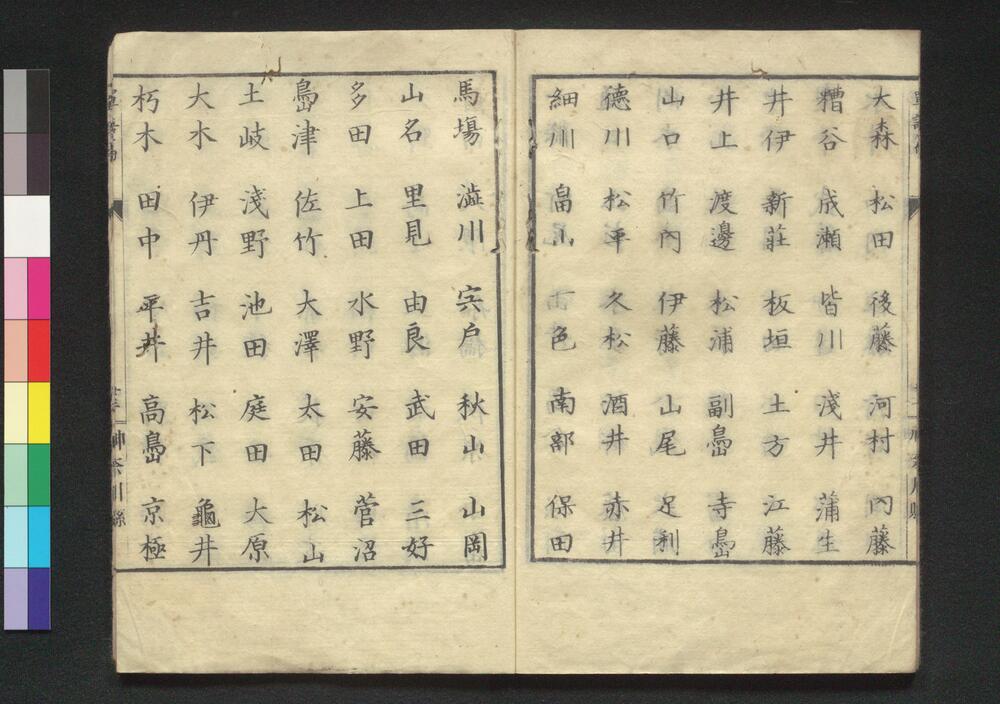 大森 松田 後藤 河村 內藤
糟谷 成瀬 皆川 淺井 蒲生
井伊 新莊 板垣 土方 江藤
井上 渡邊 松浦 副嶌 寺嶌
山口 竹內 伊藤 山尾 足利
德川 松平 久松 酒井 赤井
細川 畠山 一色 南部 保田
馬塲 澁川 宍戶 秋山 山岡
山名 里見 由良 武田 三好
多田 上田 水野 安藤 菅沼
嶌津 佐竹 大澤 太田 松山
土岐 淺野 池田 庭田 大原
大木 伊丹 吉井 松下 龜井
朽木 田中 平井 高嶌 京極
神奈川縣